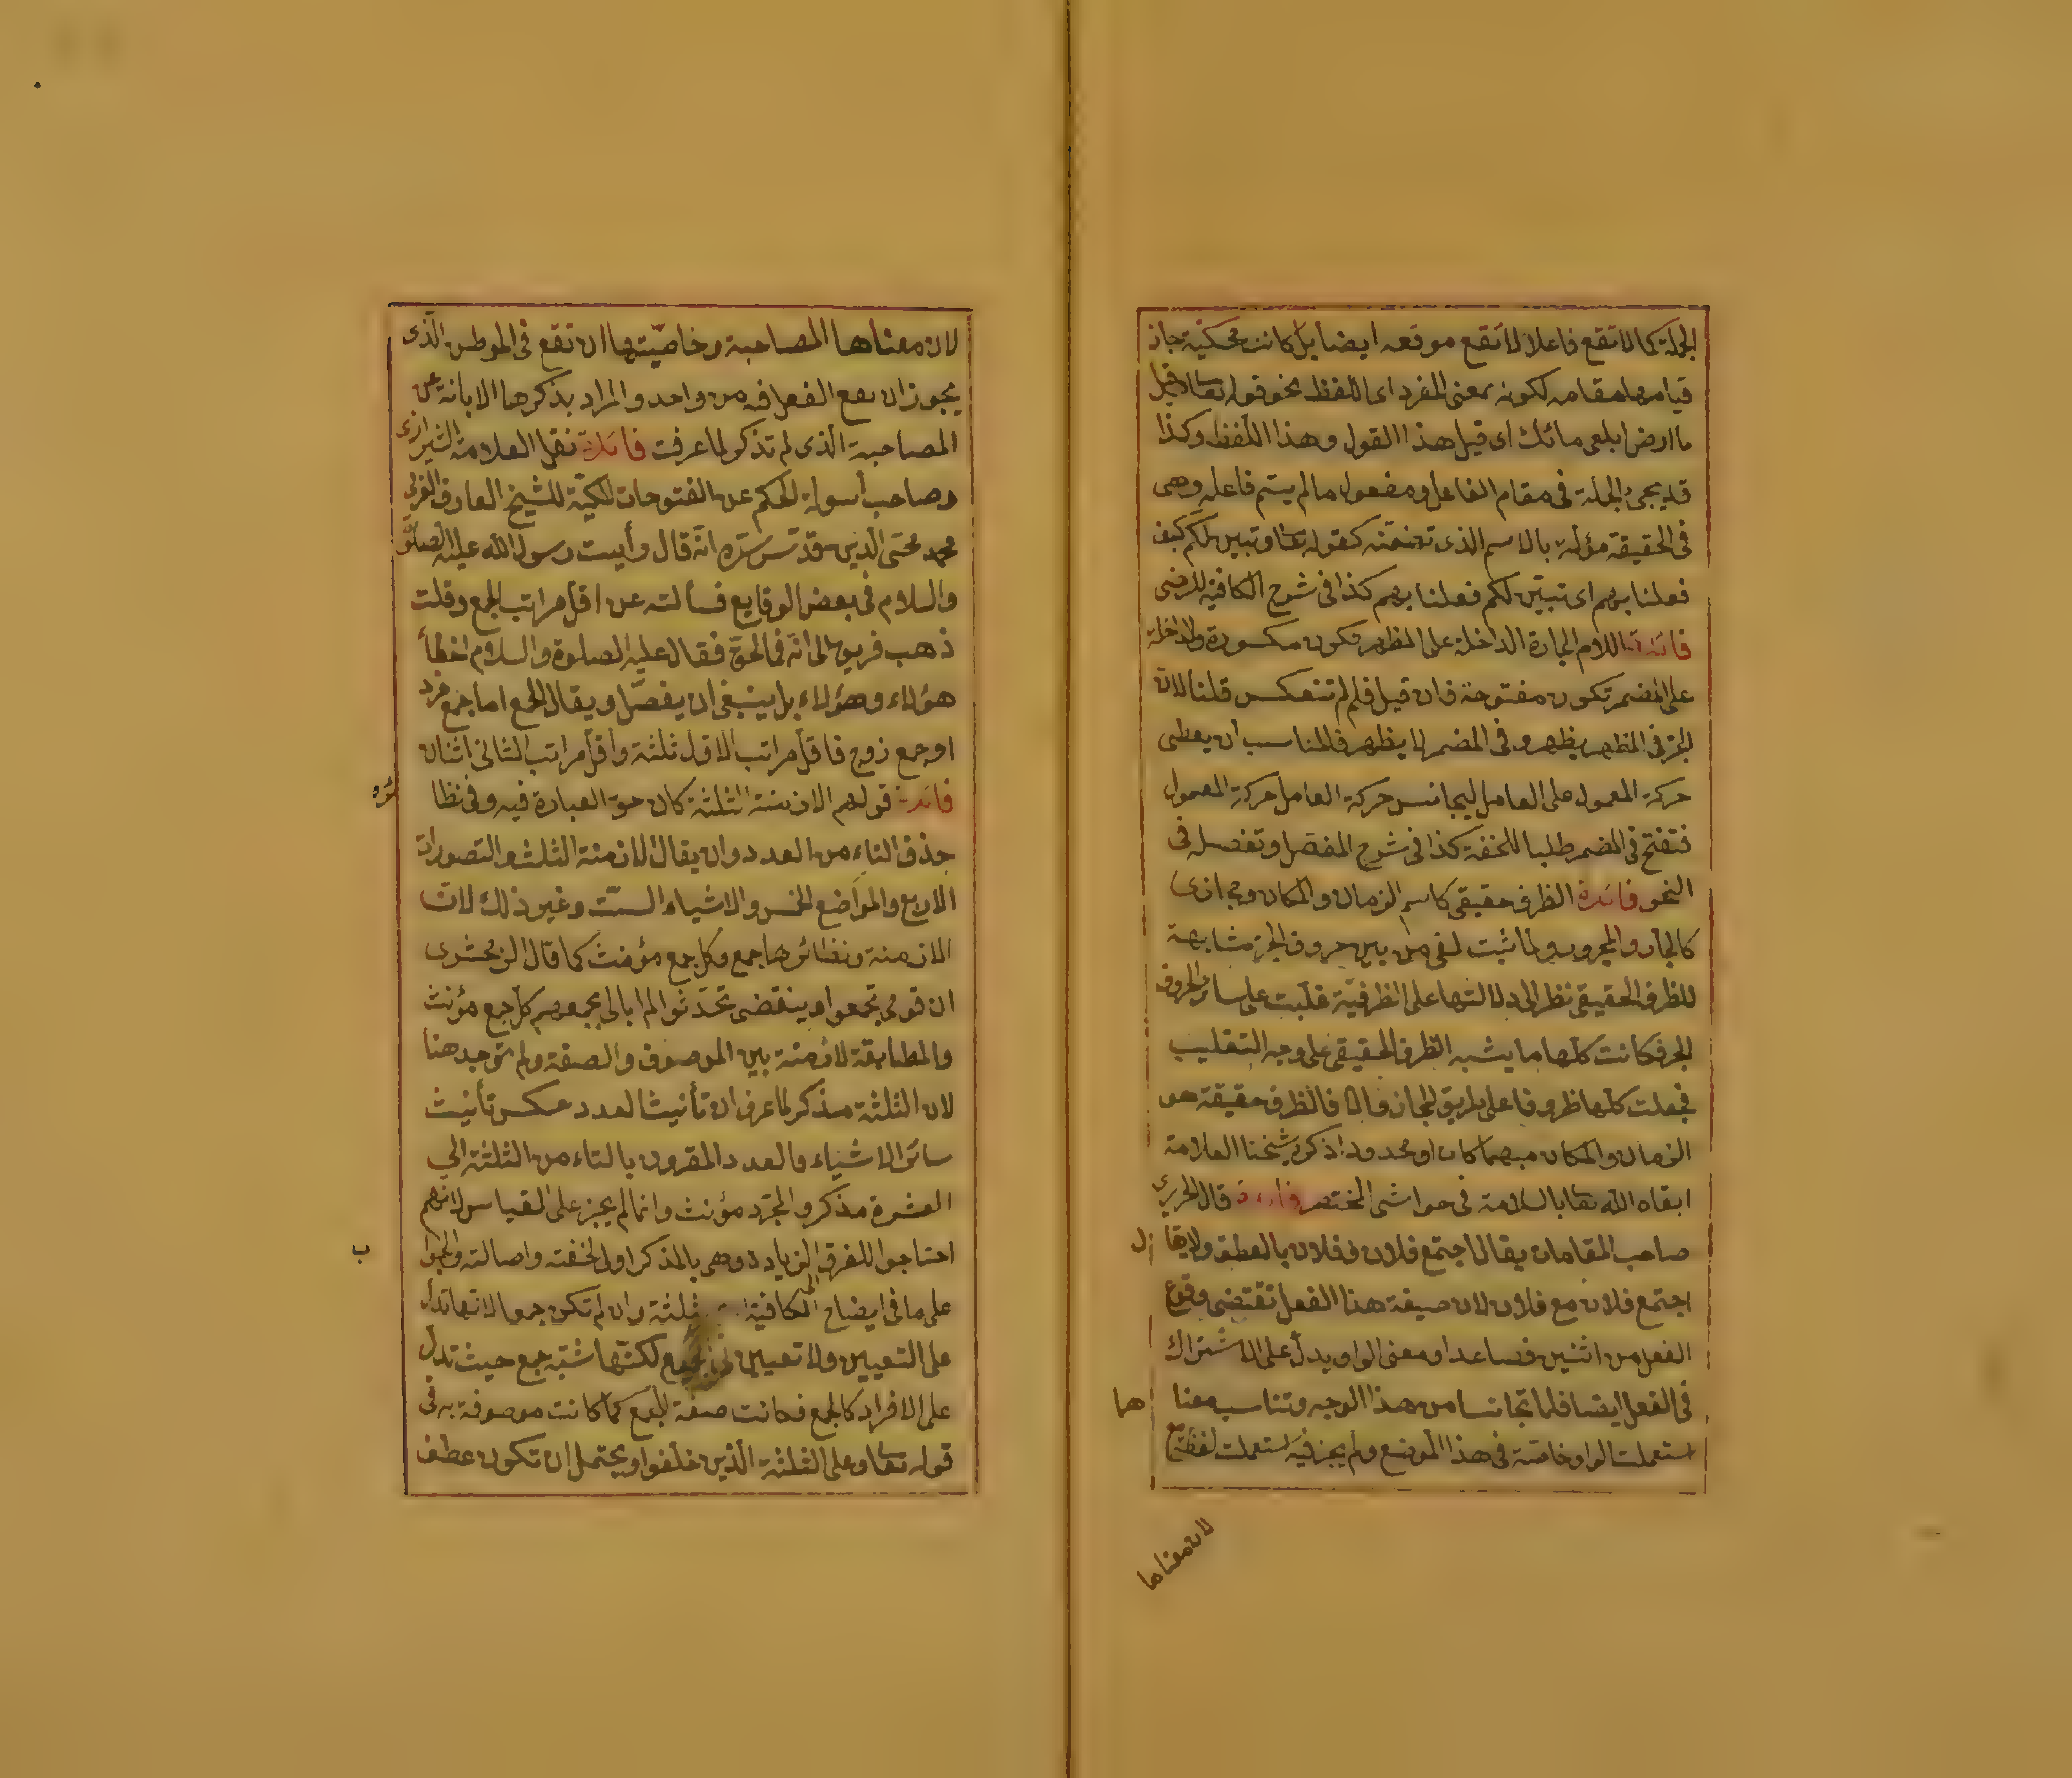 الجملة كما لا تقع فاعلا لا تقع موقعه ايضا بل كانت محكيّة جاز
قيامها مقامه لكونه بمعنى المفرد اى اللفظ نحو قوله تعا وقيل
ياارض ابلعى مائك اى قيل هذا القول وهذا اللفظ وكذا
قد يجئ الجملة فى مقام الفاعل ومفعول مالم يسّم فاعله وهى
فى الحقيقة مؤلة بالاسم الذى تضمّنته كقوله تعا وتبين لكم كيف
فعلنا بهم اى تبيّن لكم فعلنا بهم كذا فى شرح الكافية للرضى
فائدة اللام الجارة الداخلة على المظهر تكون مكسورة والداخلة
على المضمر تكون مفتوحة فان قيل فلم لم تنعكس قلنا لان
الجرّ فى المظهر يظهر و فى المضمر لا يظهر فالمناسب ان يعطى
حركة المعمول على العامل ليجانس حركة العامل حركة المعمول
فتفتح فى المضمر طلبا للخفة كذا فى شرح المفصّل وتفصيله فى
النحو فائدة الظرف حقيقى كاسم الزمان والمكان ومجازى
كالجار والمجرور ولما ثبت لفى من بين حروف الجرّ مشابهة
للظرف الحقيقى نظرا الى دلالتها على الظرفيّة غلّبت على سائر الحروف
الجر فكانت كلّها ما يشبه الظرف الحقيقى على وجه التغليب
فجعلت كلّها ظروفا على طريق المجاز والا فالظرف حقيقة هو
الزمان والمكان مبهما كان او محدودا ذكره شيخنا العلامة
ابقاه الله تعا بالسلامة فى حواشى المختصر فائدة قال الحريرى
صاحب المقامات يقال اجتمع فلان و فلان بالعطف ولا يقا ل
اجتمع فلان مع فلان لان صيغة هذا الفعل تقتضى وقوع
الفعل من اثنين فصاعدا ومعنى الواو يدلّ على الاشتراك
فى الفعل ايضا فلما تجانسا من هذا الوجه وتناسب معنا هما
استعملت الواو خاصّة فى هذا الموضع ولم يجز فيه استعملت لفظة مع
لان معناها
لان معناها المصاحبة وخاصّيتها ان تقع فى الموطن الّذى
يجوز ان يقع الفعل فيه من واحد والمراد بذكرها الابانة عن
المصاحبة الّذى لم تذكر لما عرفت فائدة نقل العلامة الشيرازى
وصاحب أسولة الحكم عن الفتوحات المكيّة للشيخ العارف العربى
محمد محيى الدّين قدّس سرّه انّه قال رأيت رسول الله عليه الصلوة
والسلام فى بعض الوقايع فسألته عن اقل مراتب الجمع وقلت
ذهب فريق الى انّه فقال عليه الصلوة والسلام اخطأ
هؤلاء وهؤلاء بل ينبغى ان يفصّل ويقال الجمع اما جمع فرد
او جمع زوج فاقل مراتب الاول ثلثة واقل مراتب الثانى اثنان
فائدة قولهم الازمنة الثلثة كان حق العبارة فيه وفى نظا ئره
حذف التاء من العدد وان يقال الازمنة الثلث والتصورات
الاربع والمواضع الخمس والاشياء الستّ وغير ذلك لان
الازمنة ونظائرها جمع وكل جمع مؤنث كما قال الزمخشرى
ان قومى تجمعوا وبنقضى تحدّثوا لا ابالى بجمعهم كلّ جمع مؤنث
والمطابقة لازمة بين الموصوف والصفة ولم توجد هنا
لان الثلثة مذكر لما عرف ان تأنيث العدد عكس تأنيث
سائر الاشياء فالعدد المقرون بالتاء من الثلثة الى
العشرة مذكر والمجرّد مؤنث وانما لم يجز على القياس لانهم
احتاجوا للفرق الى زيادة وهى بالمذكر اولى لخفته واصالته والجوا ب
على ما فى ايضاح الكافية ثلثة وان لم تكن جمعا لانها تدل
على التعيين ولا تعيين فى الجمع لكنّها شبّه جمع حيث تدل
على الافراد كالجمع فكانت صفة للجمع كما كانت موصوفة به فى
قوله تعا وعلى الثلثة الّذين خلّفوا ويحتمل ان تكون عطف